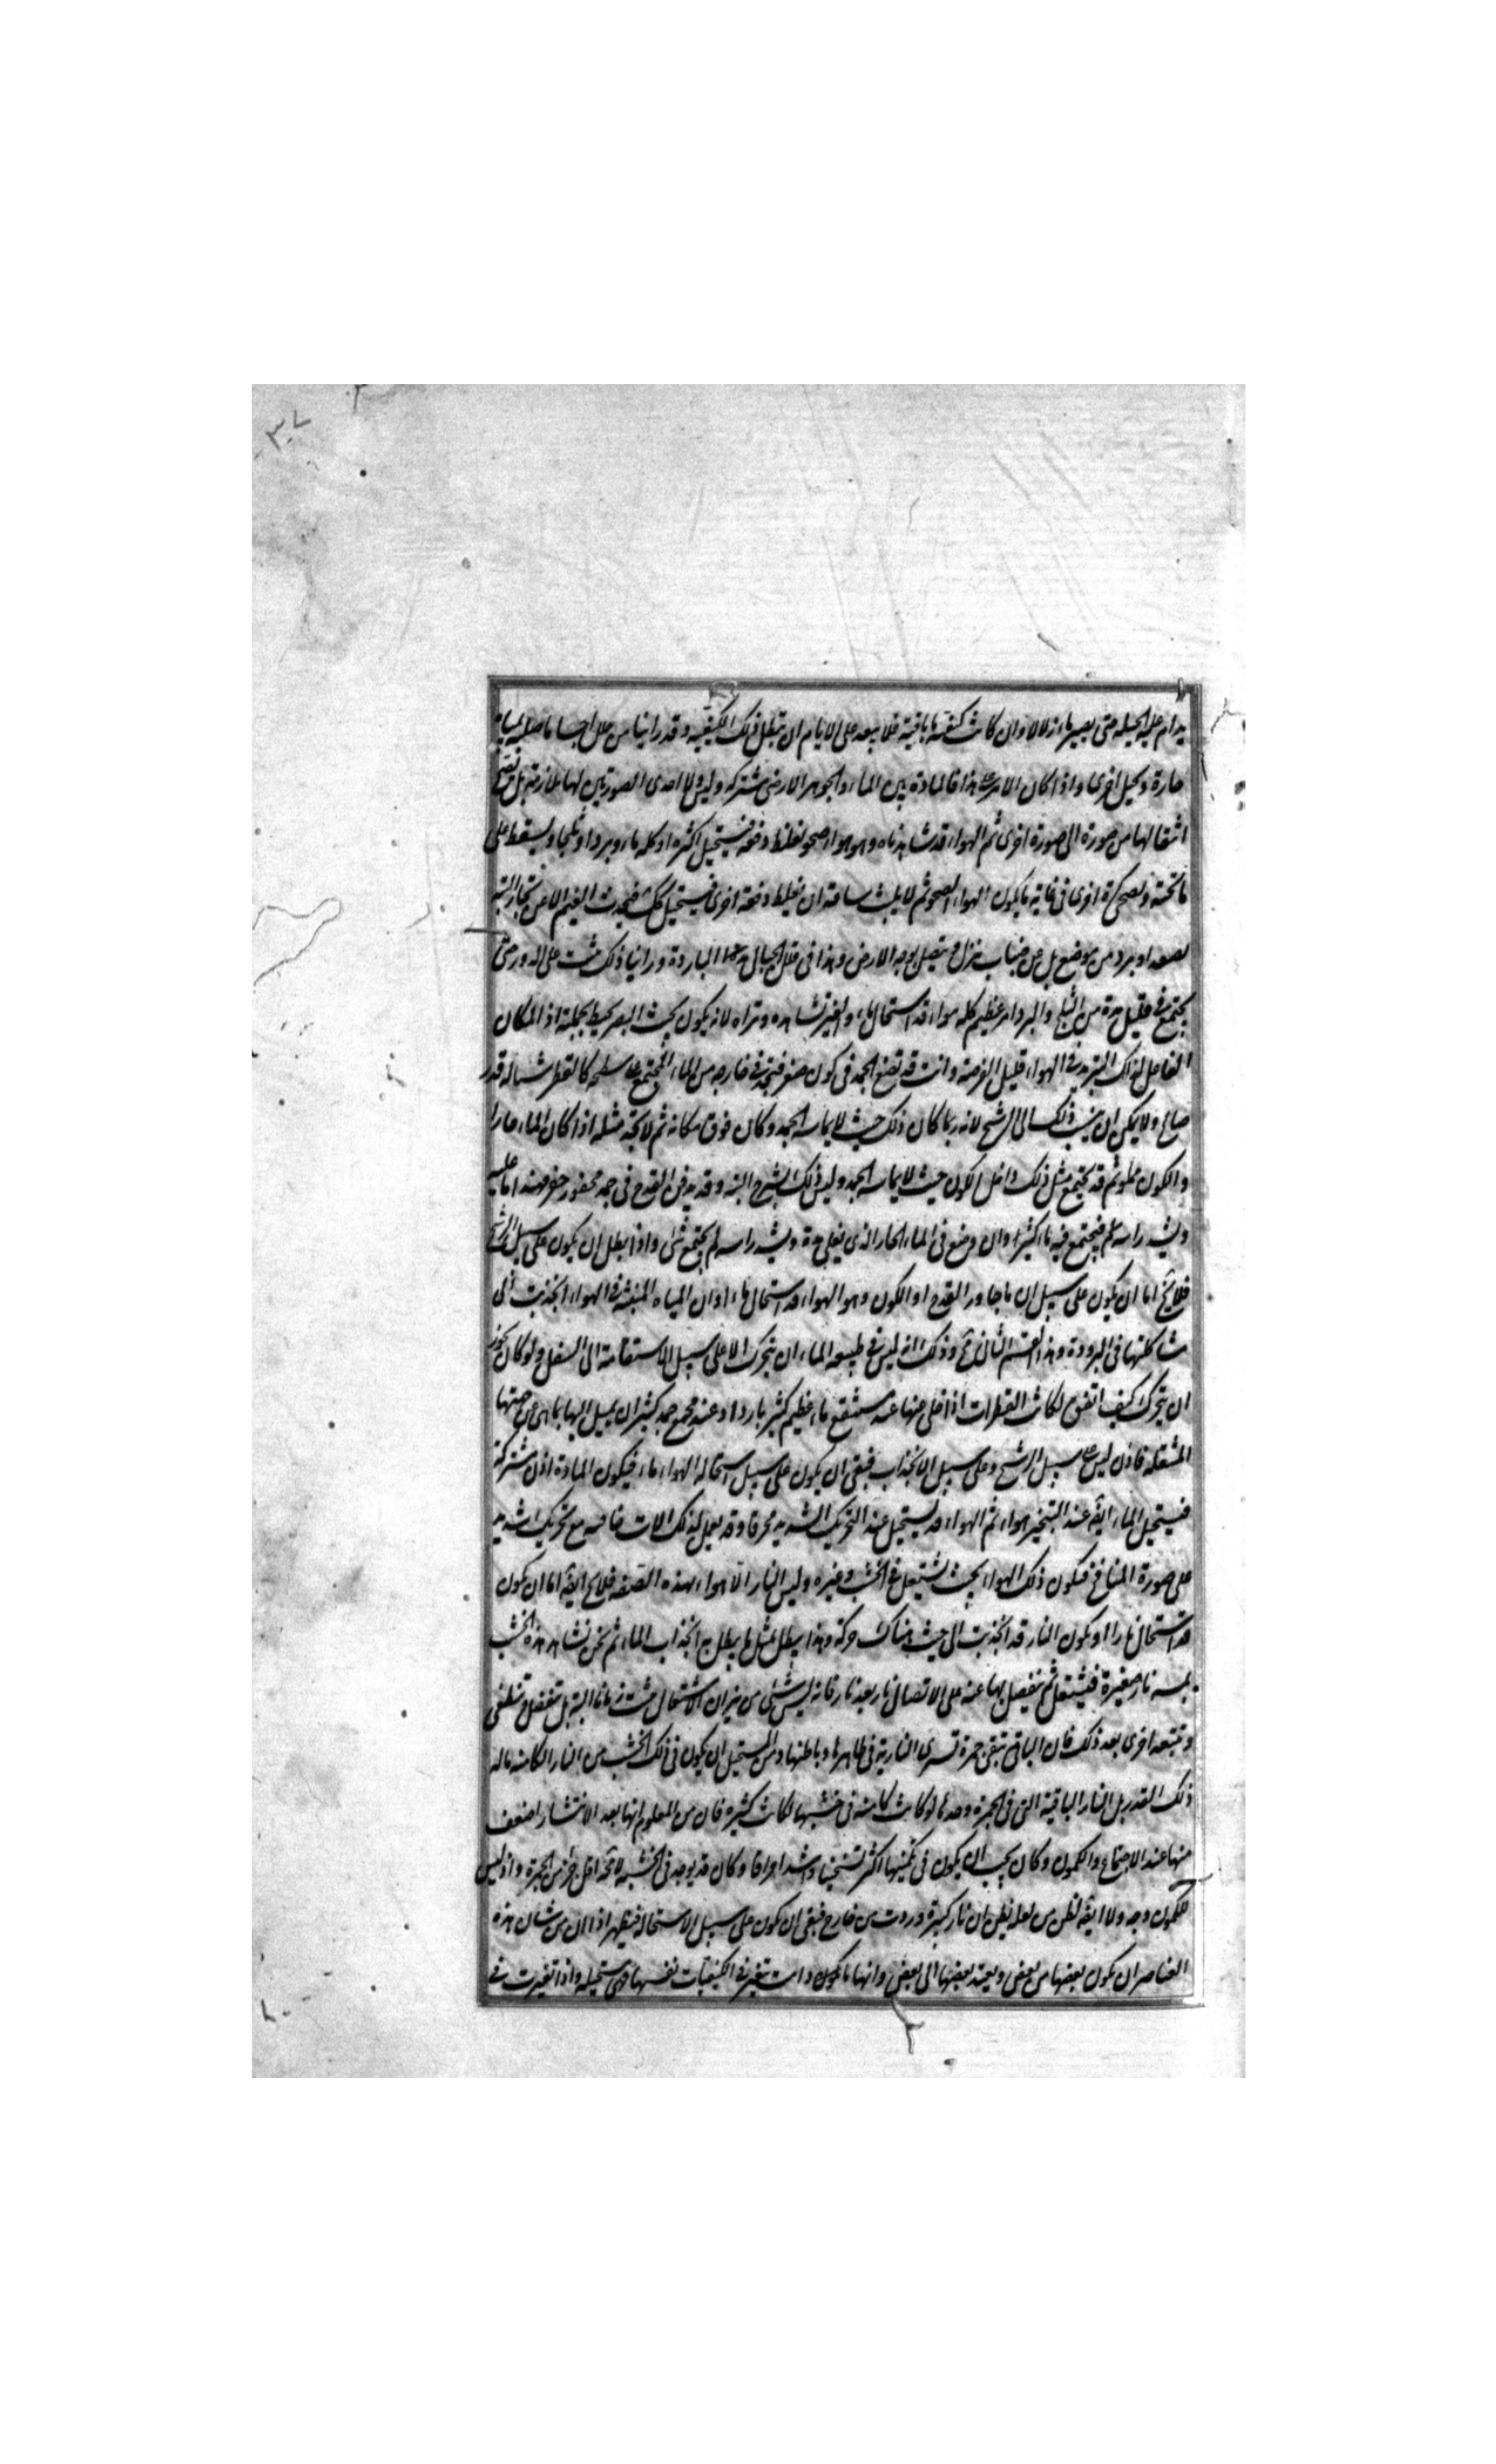 يدام عليه الحيله حتى يصير ماء زلالا وان كانت كيفية ما باقية فلا يبعد على الايام ان تبطل تلك الكيفية وقد راينا من حلل اجساما صلبة مياها
حارة وبحيل اخرى واذا كان الامر على هذا فالمادة بين الماء والجوهر الارضى مشتركة وليس ولا احدى الصورتين لها ملازمة بل يصح
انتقالها من صورة الى صورة اخرى ثم الهواء قد شاهدناه وهو هواء صحو يغلظ دفعة فيستحيل اكثره او كله ماء وبردا وثلجا ويسقط على
ما تحته ويصحى كرة اخرى فى غاية ما يكون الهواء الصحو ثم لا يلبث ساعة ان يغلظ دفعة اخرى فيستحيل كك فيحدث الغيم لا عن بخار البتة
يصعد او برد من موضع بل عن ضباب ينزل ويتصل بوجه الارض وهذا فى قلل الجبال الباردة وراينا ذلك على الدور حتى
يجتمع فى قليل مدة من الثلج والبرد امر عظيم كله هواء قد استحال ماء والغير تشاهده وتراه لانه يكون بحيث البصر يحيط بجملة اذ المكان
الفاعل لذلك التبريد فى الهواء قليل العرضة وانت قد تضع الجمد فى كوز صفر فتجد فى خارجه من الماء المجتمع على سطحه كالقطر شيئا له قدر
صالح ولا يمكن ان ينسب ذلك الى الرشح لانه ربما كان ذلك حيث لا يماسه الجمد وكان فوق مكانه ثم لا تجد مثله اذا كان الماء حارا
والكوز مملو ثم قد يجتمع مثل ذلك داخل الكوز حيث لا يماسه الجمد وليس ذلك برشح البتة وقد يدفن القدح فى جمد محفور حفرا مهندما عليه
ويشد راسه ثم فيجتمع فيه ماء كثير وان وضع فى الماء الحار الذى يغلى مدة ويشد راسه لم يجتمع شئ واذا بطل ان يكون على سبيل الرشح
فلا يخ اما ان يكون على سبيل ان ما جاور القدح او الكوز وهو الهواء قد استحال ماء او ان المياه المنبثة فى الهواء انجذبت الى
مشاكلتها فى البرودة وهذا القسم الثانى مح وذلك انه ليس فى طبيعة الماء ان يتحرك الا على سبيل الاستقامة الى السفل ولو كان يجوز
ان يتحرك كيف اتفق لكانت القطرات اذا خلى عنها عند مستنقع ماء عظيم كثير باردا وعند مجمع جمد كثير ان يميل اليها بما هى عن جهتها
المتنقلة فاذن ليس على سبيل الرشح وعلى سبيل الانجذاب فبقى ان يكون على سبيل استحالة الهواء ماء فيكون المادة اذن مشتركة
فيستحيل الماء ايضا عند التبخير هواء ثم الهواء قد يستحيل عند التحريك الشديد محرقا وقد يعمل لذلك الات خاصة مع تحريك شديد
على صورة المنافخ فيكون ذلك الهواء بحيث يشتعل فى الخشب وغيره وليس النار الا هواء بهذه الصفة فلا يخ ايضا اما ان يكون
قد استحال نارا او يكون النار قد انجذبت الى حيث هناك حركة وهذا يبطل بمثل ما يبطل به انجذاب الماء ثم نحن نشاهد هذه الخشب
يمسه نار صغيرة فيشتعل ثم ينفصل بها عنه على الاتصال نار بعد نار فانه ليس شئ من نيران الاشتعال مثبت زمانا البتة بل تنفصل وتنطفى
وتتبعه اخرى بعد ذلك فان الباقى تبقى جمرة تسرى النارية فى ظاهرها وباطنها ومن المستحيل ان يكون فى ذلك الخشب من النار الكامنة ماله
ذلك القدر بل النار الباقية التى فى الجمرة وحدها لو كانت كامنة فى خشبها لكانت كثيرة فان من المعلوم انها بعد الانتشار اضعف
منها عند الاجتماع والكمون وكان يجب ان يكون فى كمينها اكثر تسخينا واشد احراقا وكان قد يوجد فى الخشبة لا محة اقل حرا من الجمرة واذ ليس
للكمون وجه ولا ايضا لظن من لعله يظن ان نارا كثيرة وردت من خارج فبقى ان يكون على سبيل الاستحالة فيظهر اذا ان من شان هذه
العناصر ان يكون بعضها من بعض ويفسد بعضها الى بعض وانها ما يكون دامت تتغير فى الكيفيات نفسها فهى مستحيلة واذا تغيرت فى